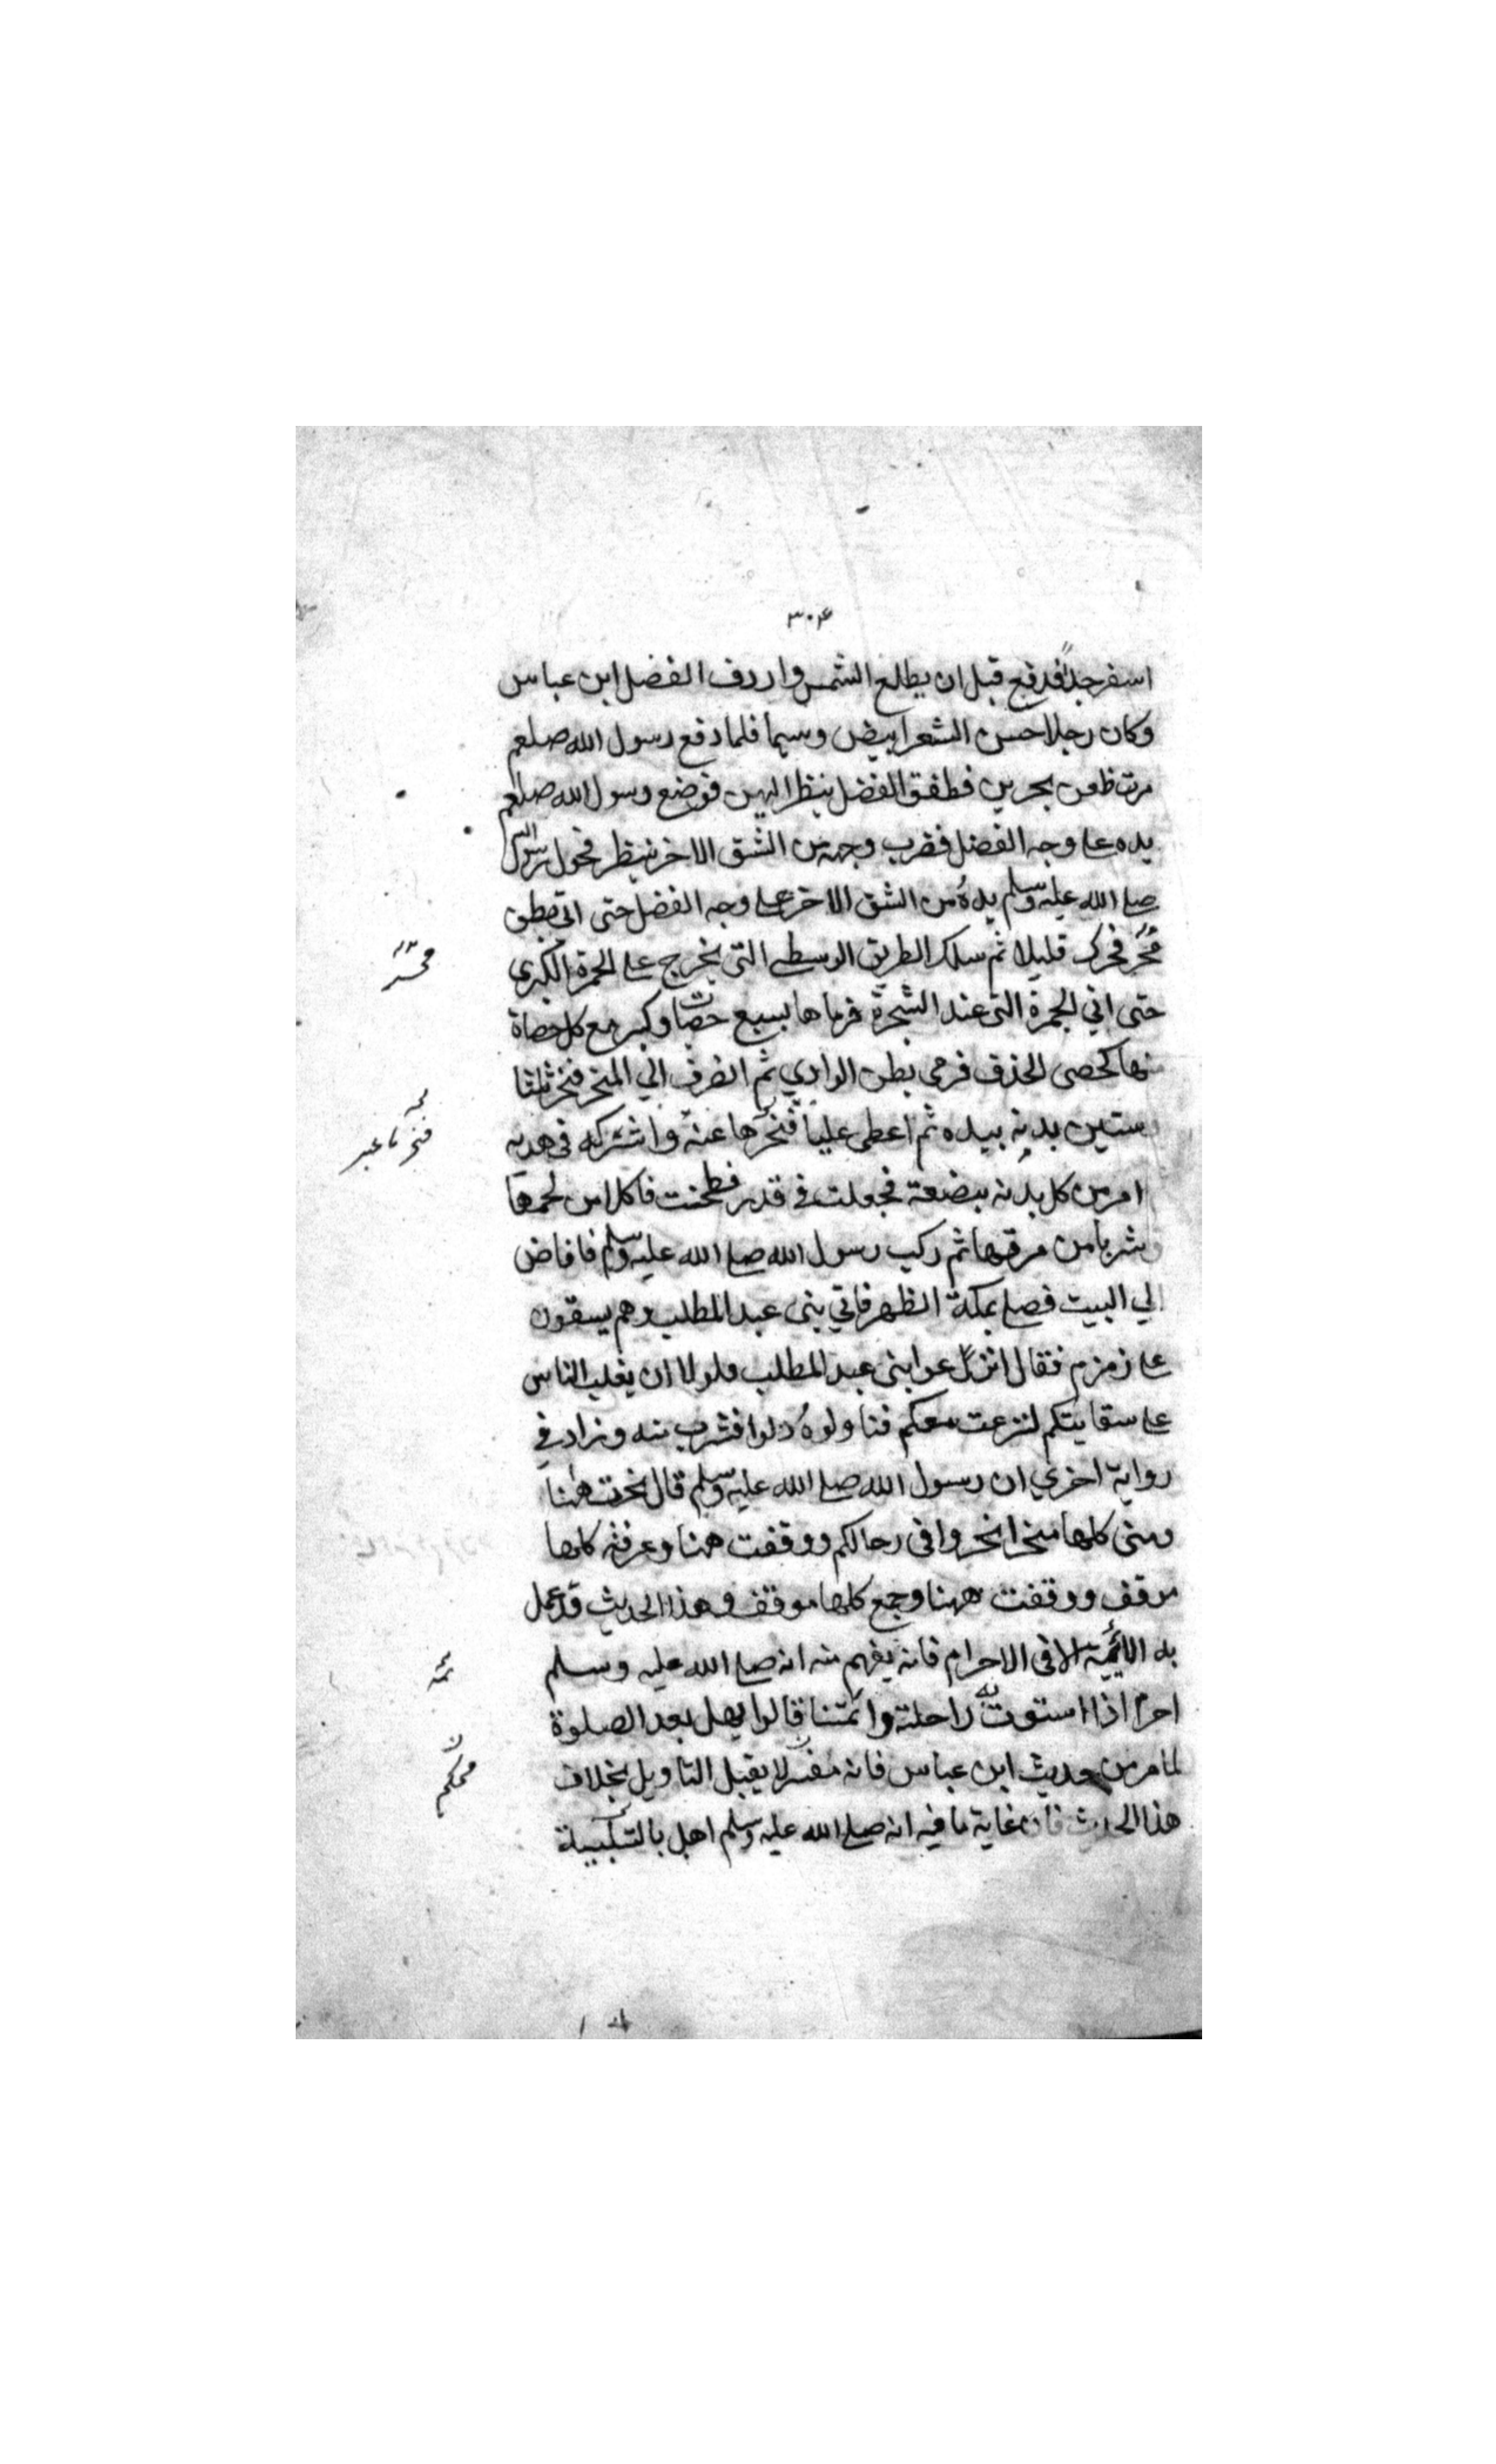 ۳۰۴
اسفر جدا فدفع قبل ان يطلع الشمس واردف الفضل ابن عباس
وكان رجلا حسن الشعر ابيض وسيما فلما دفع رسول الله صلعم
مرت ظعن يجرين فطفق الفضل ينظر اليهن فوضع رسول الله صلعم
يده على وجه الفضل فضرب وجهه من الشق الاخر ينظر فحول رسول الله
صلى الله عليه وسلم يده من الشق الاخر على وجه الفضل حتى اتى بطن
محسر فحرك قليلا ثم سلك الطريق الوسطى التي يخرج على الجمرة الكبرى
محسر
حتى اتي الجمرة التي عند الشجرة فرماها بسبع حصات وكبر مع كل حصاة
منها كحصى الخذف فرمى بطن الوادي ثم انصرف الي المنحر فنحر ثلثا
وستين بدنه بيده ثم اعطى عليا فنحرها عنه واشركه في هديه
فنحر ما غبر
امر من كل بدنه ببضعة فجعلت في قدر فطبخت فاكلا من لحمها
وشربا من مرقها ثم ركب رسول الله صلى الله عليه وسلم فافاض
الي البيت فصلى بمكة الظهر فاتي بني عبد المطلب وهم يسقون
على زمزم فقال انزعوا بني عبد المطلب فلولا ان يغلب الناس
على سقايتكم لنزعت معكم فناولوه دلوا فشرب منه وزاد في
رواية اخري ان رسول الله صلى الله عليه وسلم قال نحرت ههنا
ومنى كلها منحر انحروا في رحالكم ووقفت ههنا وعرفة كلها
موقف ووقفت ههنا وجمع كلها موقف وهذا الحديث قد عمل
به الائمة الا في الاحرام فانه يفهم منه انه صلى الله عليه وسلم
احرم اذا استوت به راحلته وائمتنا قالوا يهل بعد الصلوة
لما مر من حديث ابن عباس فانه مفسر لا يقبل التاويل بخلاف
محكم
هذا الحديث فان غاية ما فيه انه صلى الله عليه وسلم اهل بالتلبية